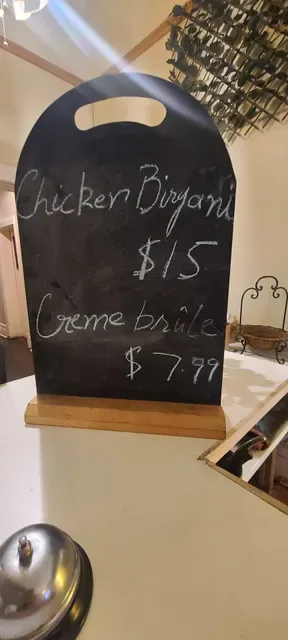 Chicken Biryani
$15
Creme brûle
$7.99